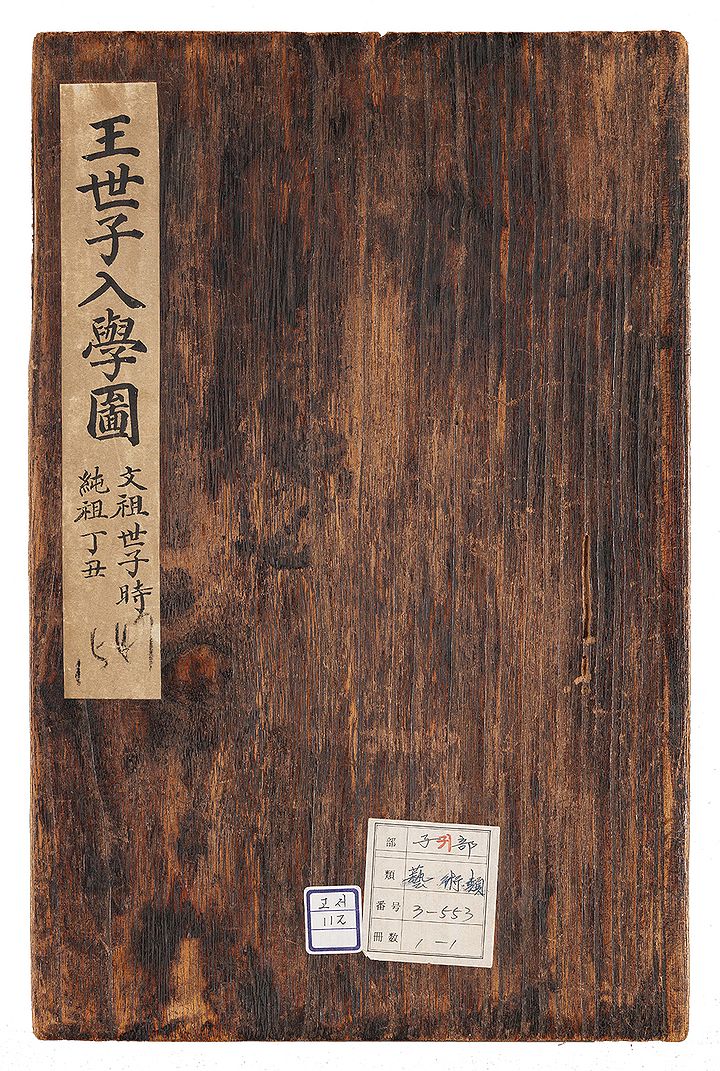 王世子入學圖
文祖世子時
純祖丁丑
部 子 部
類 藝術類
番号 3-553
冊数 1-1
고서